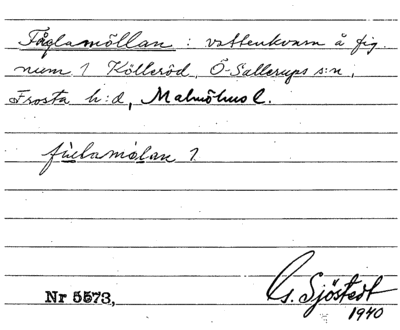 Fåglamöllan : vattenkvarn å fig.
num 1 Kölleröd, Ö-Sallerups s:n,
Frosta h:d, Malmöhus l.
fúglamølan 1.
Nr 5573,
G. Sjöstedt
1940